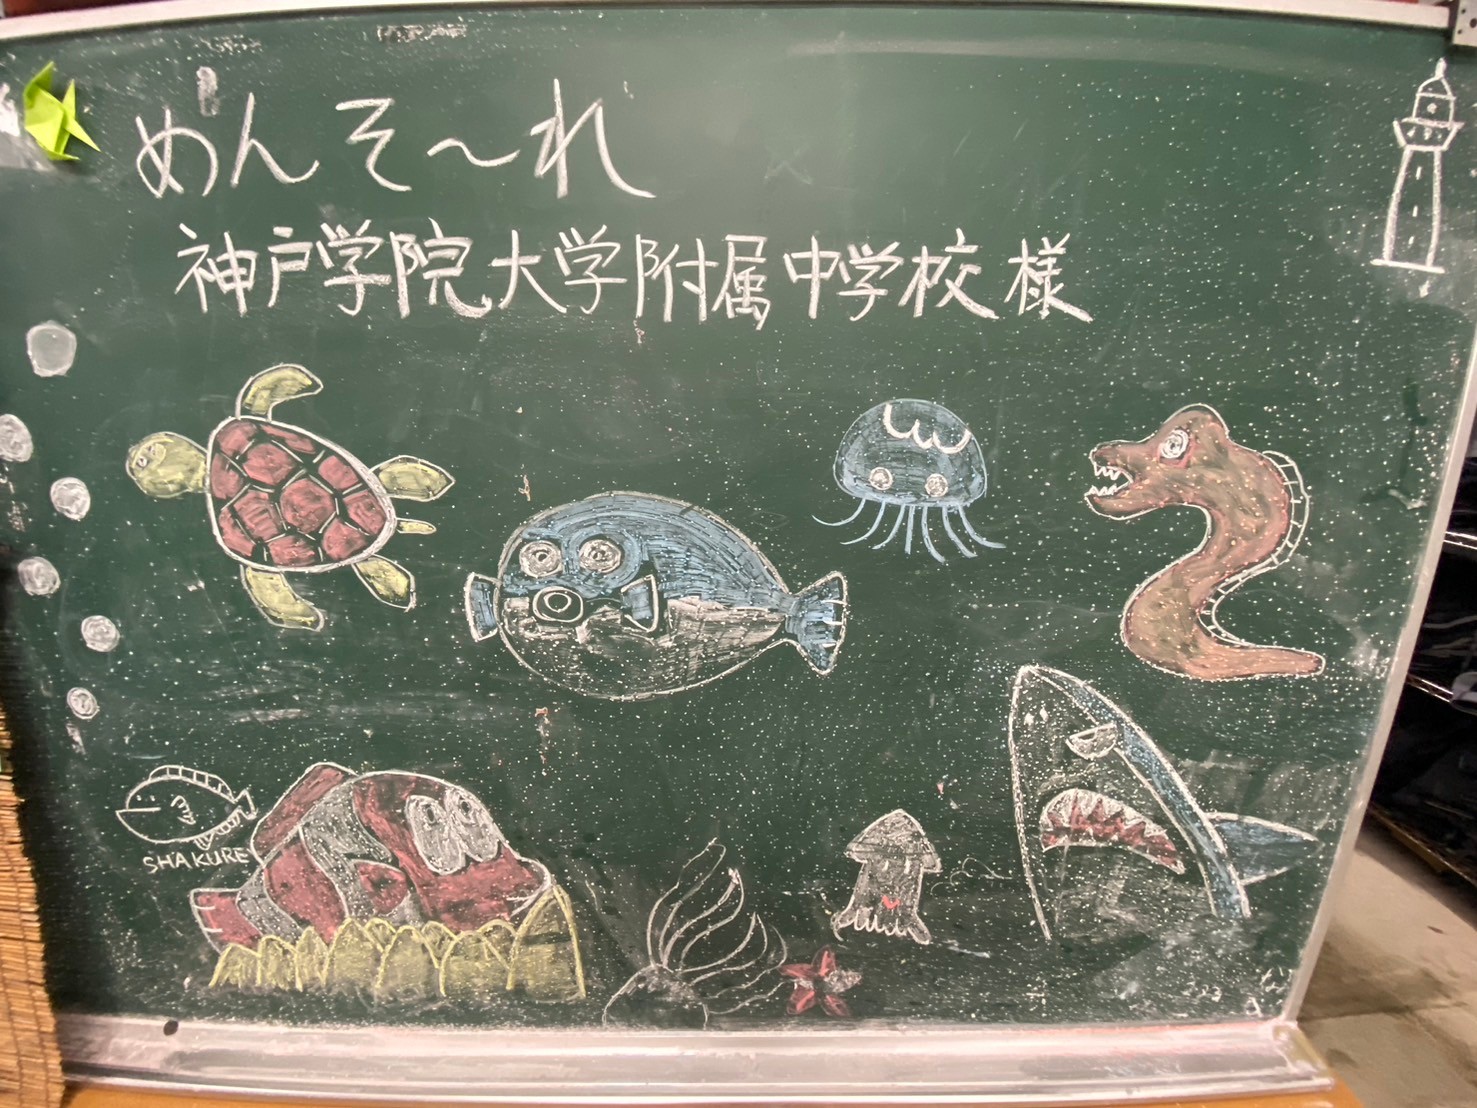 めんそ～れ
神戸学院大学附属中学校様
SHAKURE